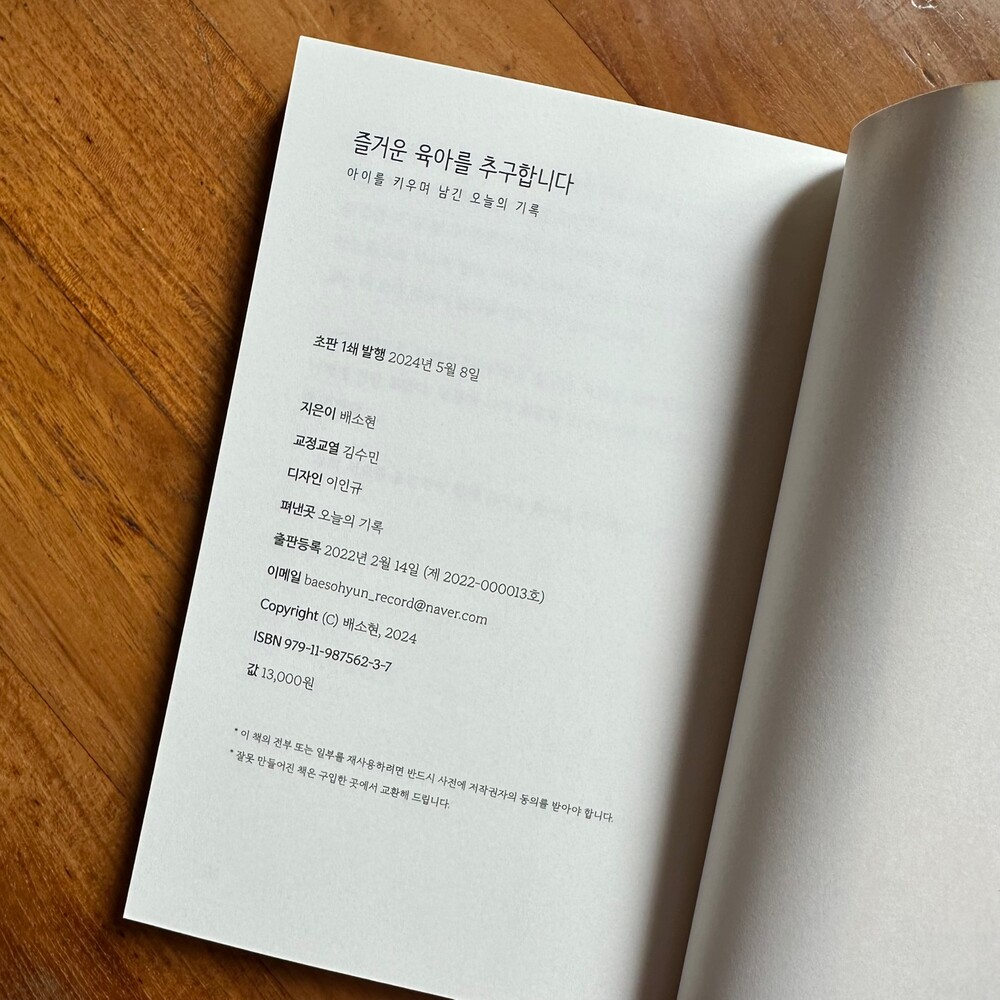 즐거운 육아를 추구합니다
아이를 키우며 남긴 오늘의 기록
초판 1쇄 발행 2024년 5월 8일
지은이 배소현
교정교열 김수민
디자인 이인규
펴낸곳 오늘의 기록
출판등록 2022년 2월 14일 (제 2022-000013호)
이메일 baesohyun_record@naver.com
Copyright (C) 배소현, 2024
ISBN 979-11-987562-3-7
값 13,000원
* 이 책의 전부 또는 일부를 재사용하려면 반드시 사전에 저작권자의 동의를 받아야 합니다.
* 잘못 만들어진 책은 구입한 곳에서 교환해 드립니다.